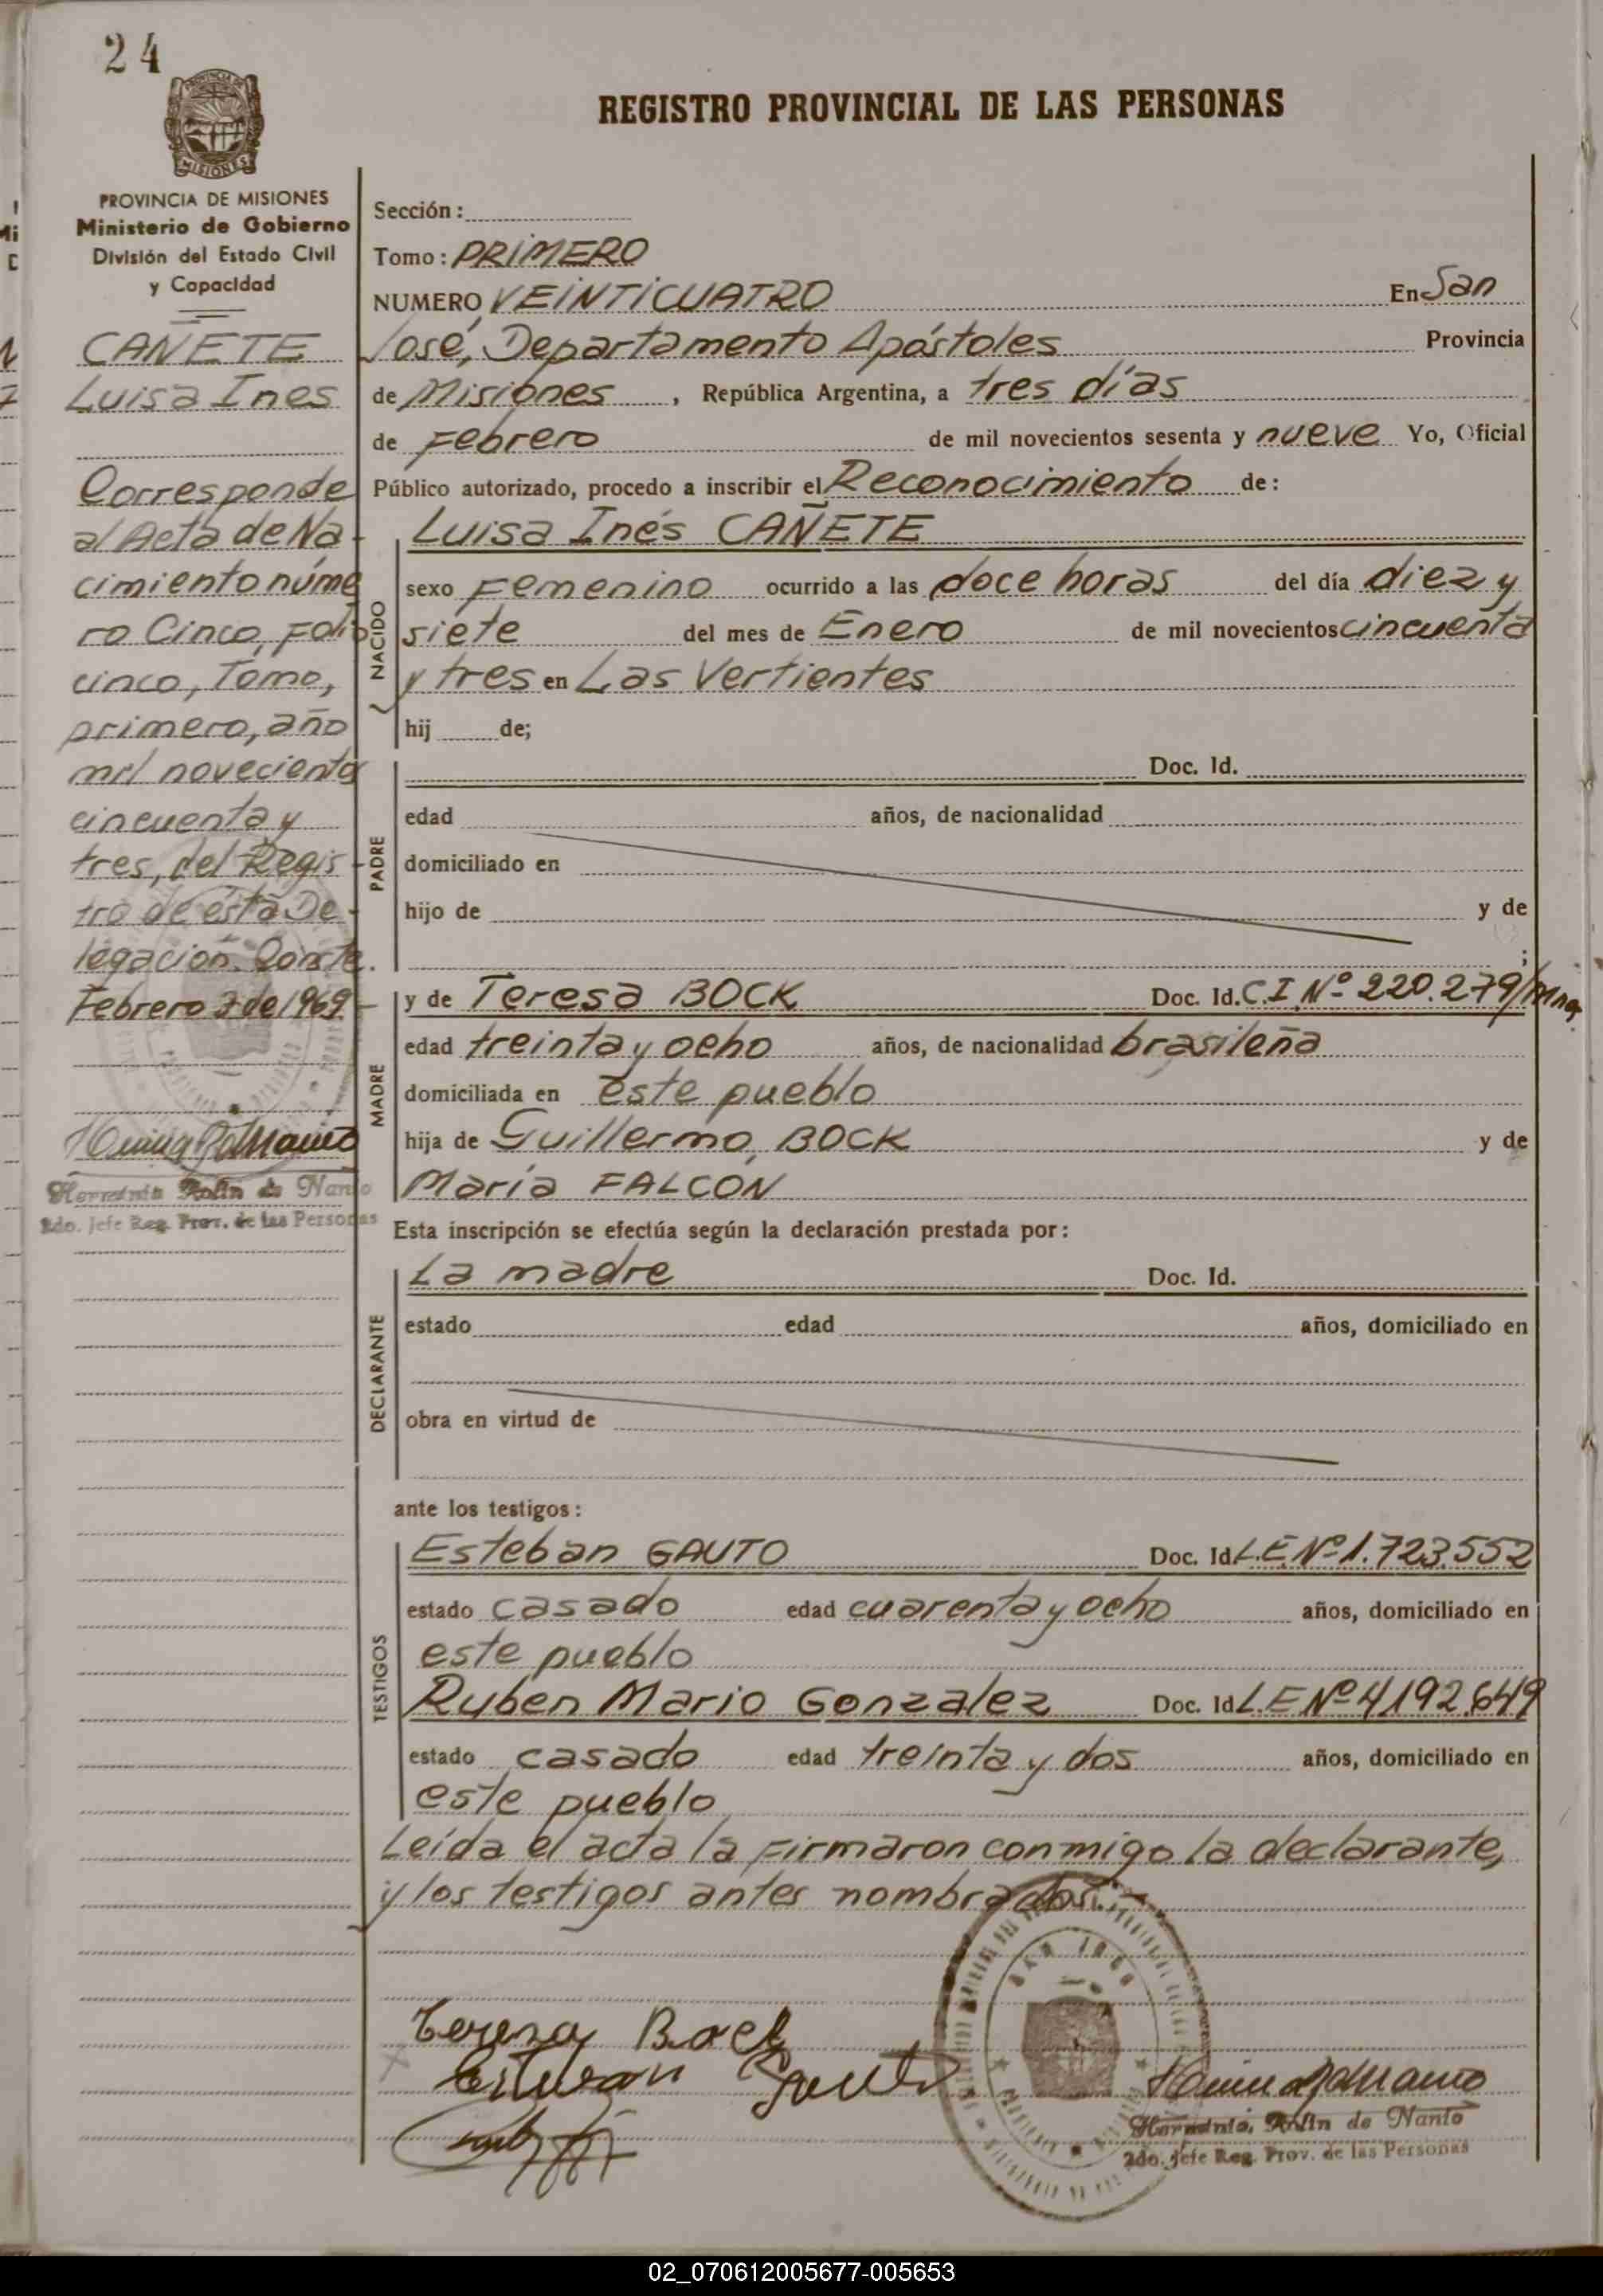 24
PROVINCIA DE
MISIONES
REGISTRO PROVINCIAL DE LAS PERSONAS
PROVINCIA DE MISIONES
Ministerio de Gobierno
División del Estado Civil
y Capacidad
CAÑETE
Luisa Ines
Corresponde
al Acta de Na-
cimiento núme
ro Cinco, Folio
cinco, Tomo,
primero, año
mil novecientos
cincuenta y
tres, del Regis-
tro de ésta De-
legación. Conste.
Febrero 3 de 1969-
Herminia Rolin de Nanto
2do. Jefe Reg. Prov. de las Personas
Sección:
Tomo: PRIMERO
NUMERO VEINTICUATRO En San
José, Departamento Apóstoles Provincia
de Misiones, República Argentina, a tres días
de Febrero de mil novecientos sesenta y nueve Yo, Oficial
Público autorizado, procedo a inscribir el Reconocimiento de:
NACIDO
Luisa Inés CAÑETE
sexo Femenino ocurrido a las doce horas del día diez y
siete del mes de Enero de mil novecientos cincuenta
y tres en Las Vertientes
hij de;
PADRE
Doc. Id.
edad años, de nacionalidad
domiciliado en
hijo de y de
;
MADRE
y de Teresa BOCK Doc. Id. C.I Nº 220.279/Mnes
edad treinta y ocho años, de nacionalidad brasileña
domiciliada en este pueblo
hija de Guillermo BOCK y de
María FALCÓN
Esta inscripción se efectúa según la declaración prestada por:
DECLARANTE
La madre Doc. Id.
estado edad años, domiciliado en
obra en virtud de
ante los testigos:
TESTIGOS
Esteban GAUTO Doc. Id L.E Nº 1.723.552
estado casado edad cuarenta y ocho años, domiciliado en
este pueblo
Ruben Mario Gonzalez Doc. Id L.E Nº 4192.649
estado casado edad treinta y dos años, domiciliado en
este pueblo
Leída el acta la Firmaron conmigo la declarante,
y los testigos antes nombrados.-
Teresa Bock
Estevan Gauto
Herminia Rolin de Nanto
2do. Jefe Reg. Prov. de las Personas
02_070612005677-005653